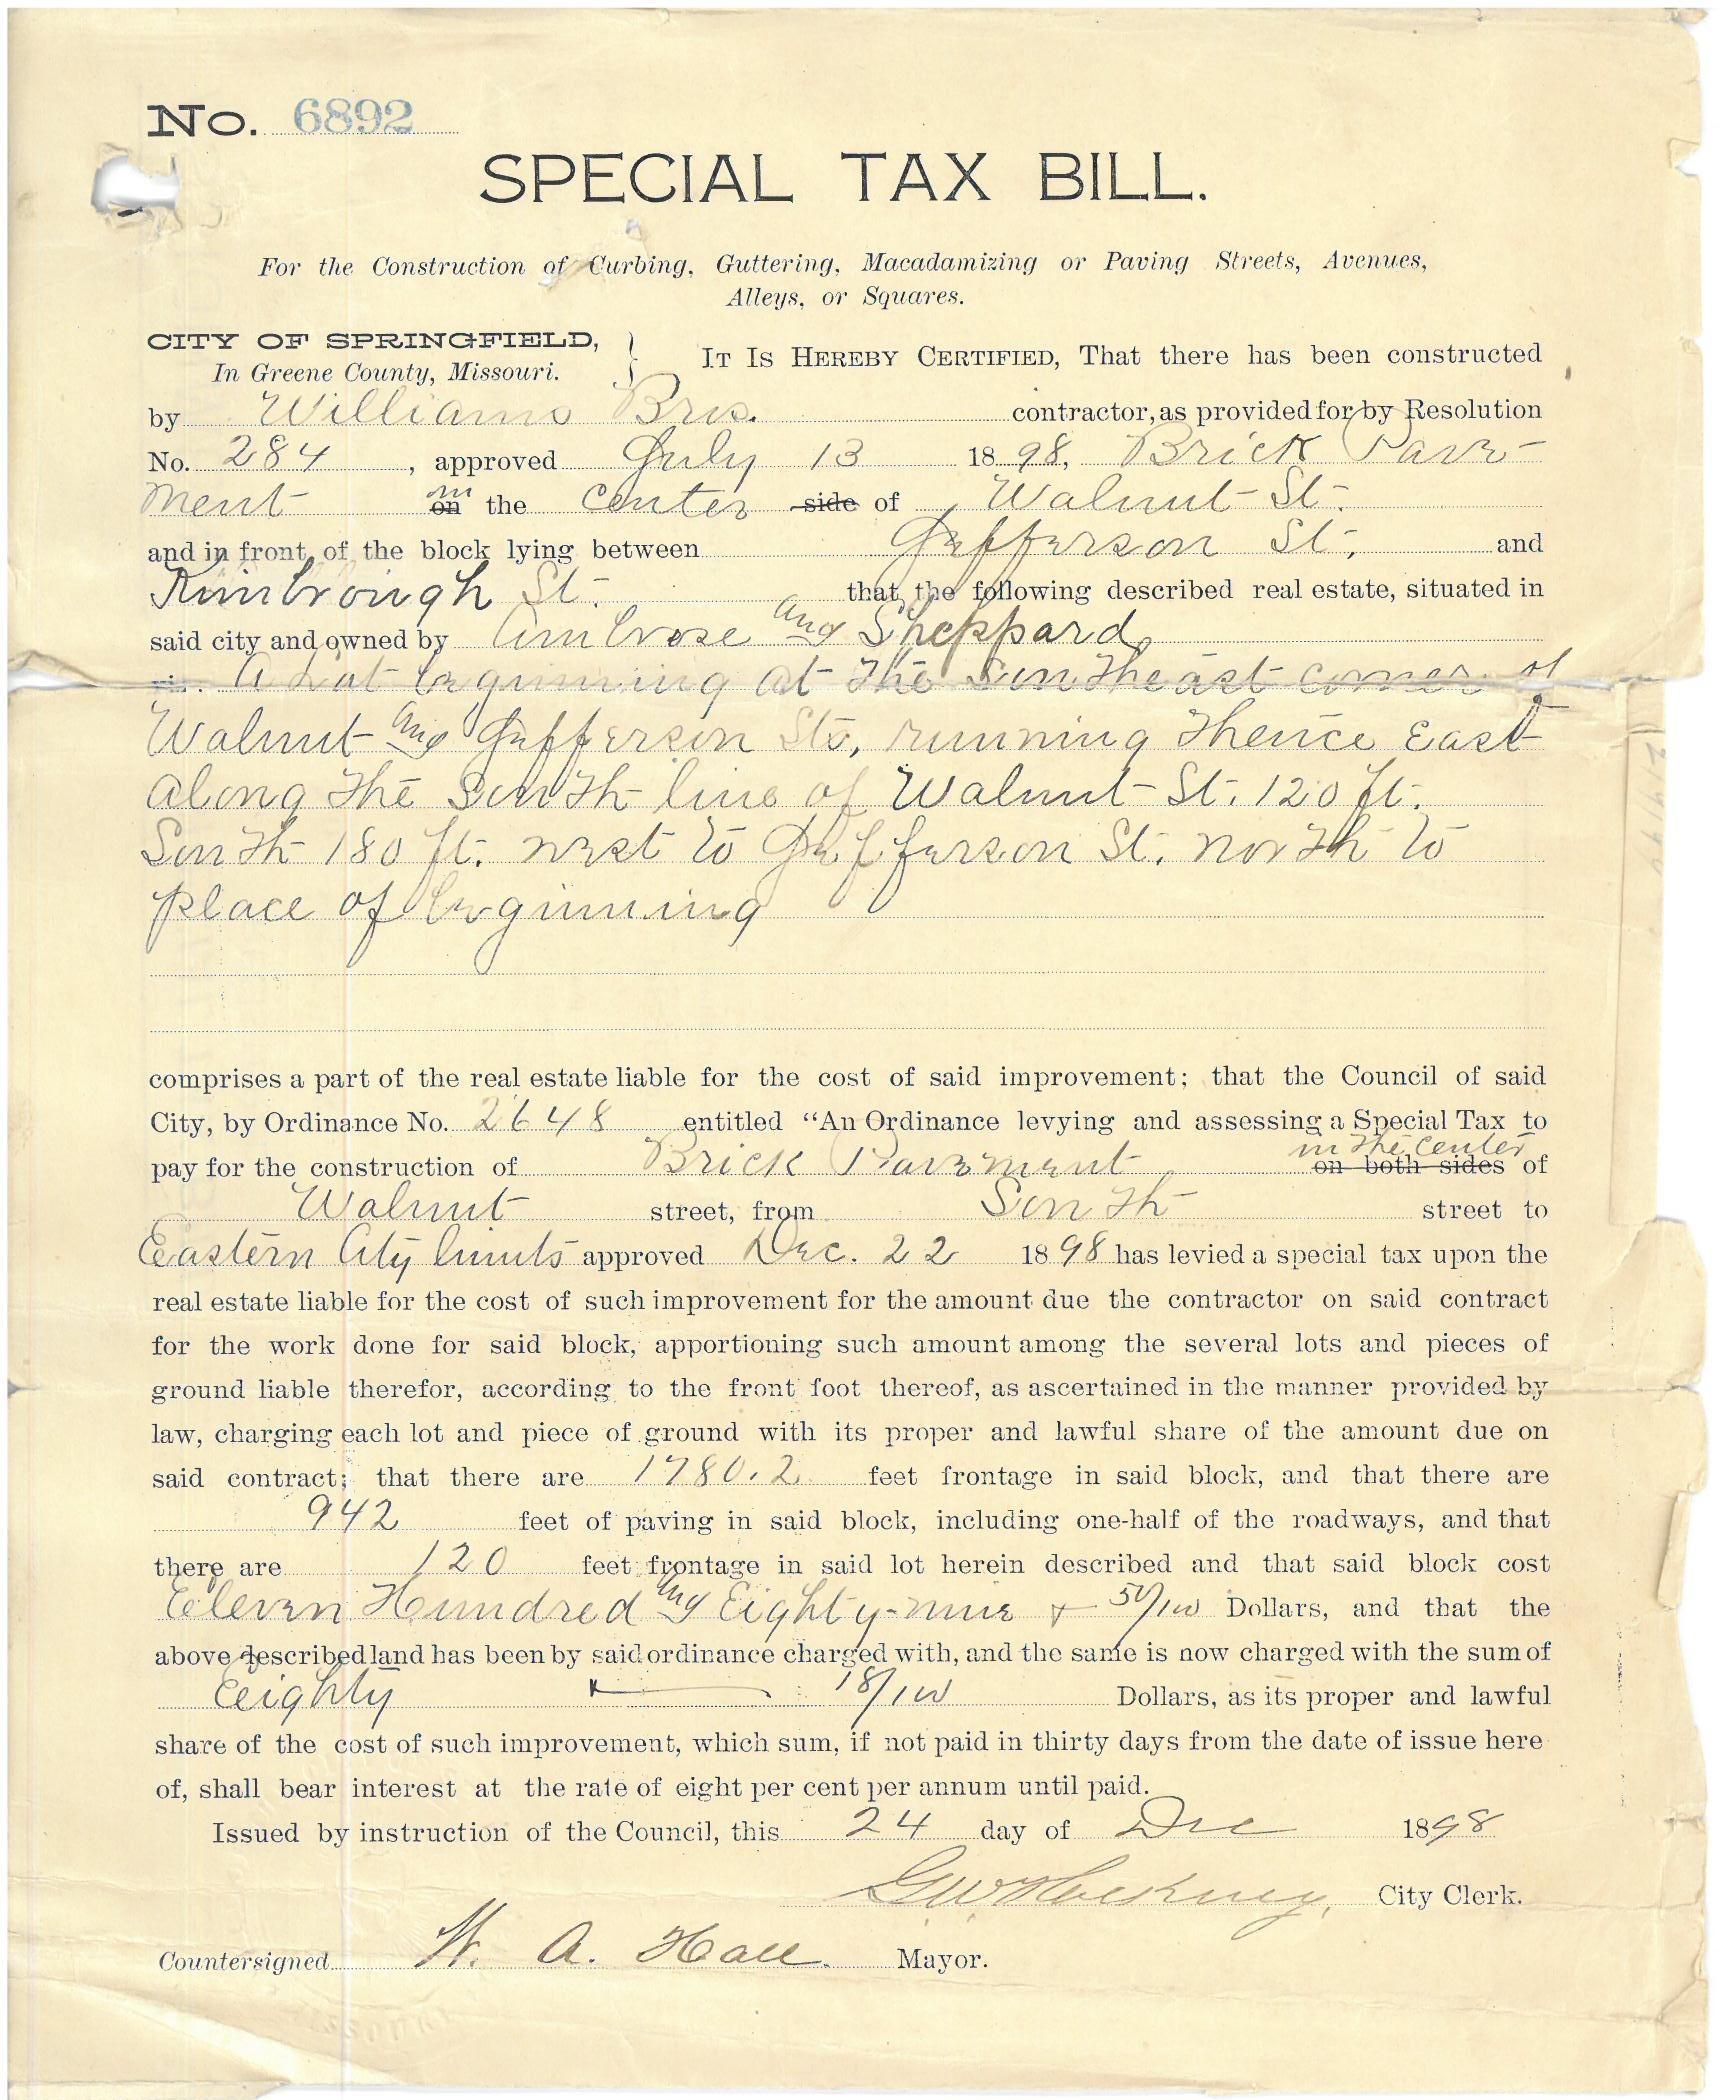 No. 6892
SPECIAL TAX BILL.
For the Construction of Curbing, Guttering, Macadamizing or Paving Streets, Avenues,
Alleys, or Squares.
CITY OF SPRINGFIELD,
In Greene County, Missouri.
IT IS HEREBY CERTIFIED, That there has been constructed
by Williams Bros. contractor, as provided for by Resolution
No. 284, approved July 13 1898, Brick Pave-
ment on in the center side of Walnut St.
and in front of the block lying between Jefferson St. and
Kimbrough St. that the following described real estate, situated in
said city and owned by Ambrose and Sheppard,
viz. A Lot beginning at the Southeast corner of
Walnut and Jefferson Sts, running thence East
along the South line of Walnut St. 120 ft.
South 180 ft. west to Jefferson St. north to
place of beginning
comprises a part of the real estate liable for the cost of said improvement; that the Council of said
City, by Ordinance No. 2648 entitled "An Ordinance levying and assessing a Special Tax to
pay for the construction of Brick Pavement on both sides in the center of
Walnut street, from South street to
Eastern City limits approved Dec. 22 1898 has levied a special tax upon the
real estate liable for the cost of such improvement for the amount due the contractor on said contract
for the work done for said block, apportioning such amount among the several lots and pieces of
ground liable therefor, according to the front foot thereof, as ascertained in the manner provided by
law, charging each lot and piece of ground with its proper and lawful share of the amount due on
said contract; that there are 1780.2 feet frontage in said block, and that there are
942 feet of paving in said block, including one-half of the roadways, and that
there are 120 feet frontage in said lot herein described and that said block cost
Eleven Hundred and Eighty-nine + 50/100 Dollars, and that the
above described land has been by said ordinance charged with, and the same is now charged with the sum of
Eighty 18/100 Dollars, as its proper and lawful
share of the cost of such improvement, which sum, if not paid in thirty days from the date of issue here
of, shall bear interest at the rate of eight per cent per annum until paid.
Issued by instruction of the Council, this 24 day of Dec 1898
City Clerk.
Countersigned W. A. Hall Mayor.